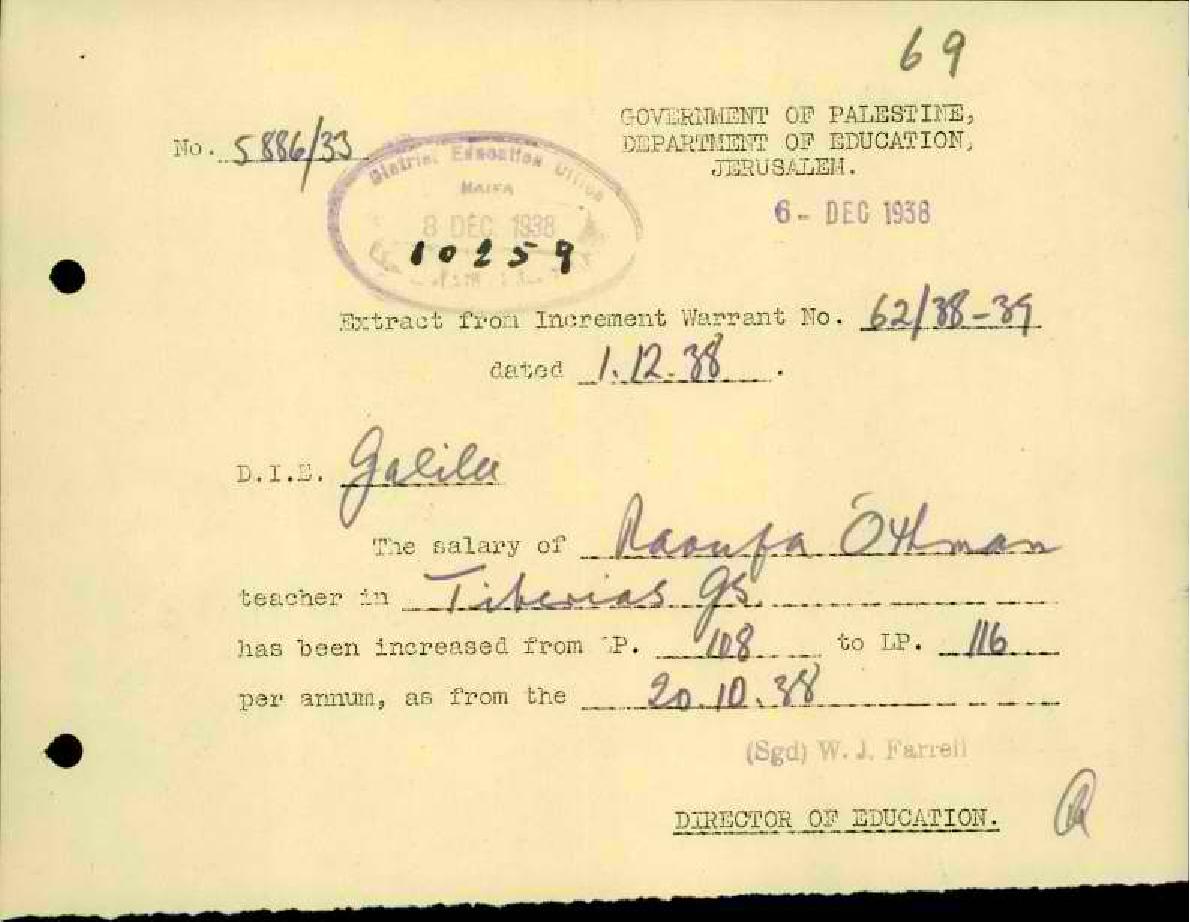 69
GOVERNMENT OF PALESTINE,
DEPARTMENT OF EDUCATION,
JERUSALEM.
No. 5886/33
6- DEC 1938
District Education Office
HAIFA
8 DEC 1938
10259
Extract from Increment Warrant No. 62/38-39
dated 1.12.38.
D.I.E. Galilee
The salary of Raoufa Othman
teacher in Tiberias GS
has been increased from LP. 108 to LP. 116
per annum, as from the 20.10.38
(Sgd) W. J. Farrell
DIRECTOR OF EDUCATION.